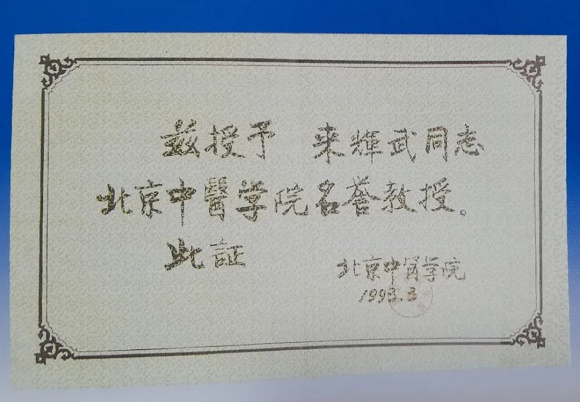 兹授予 来輝武同志
北京中醫学院名誉教授。
此证
北京中醫学院
1993.3